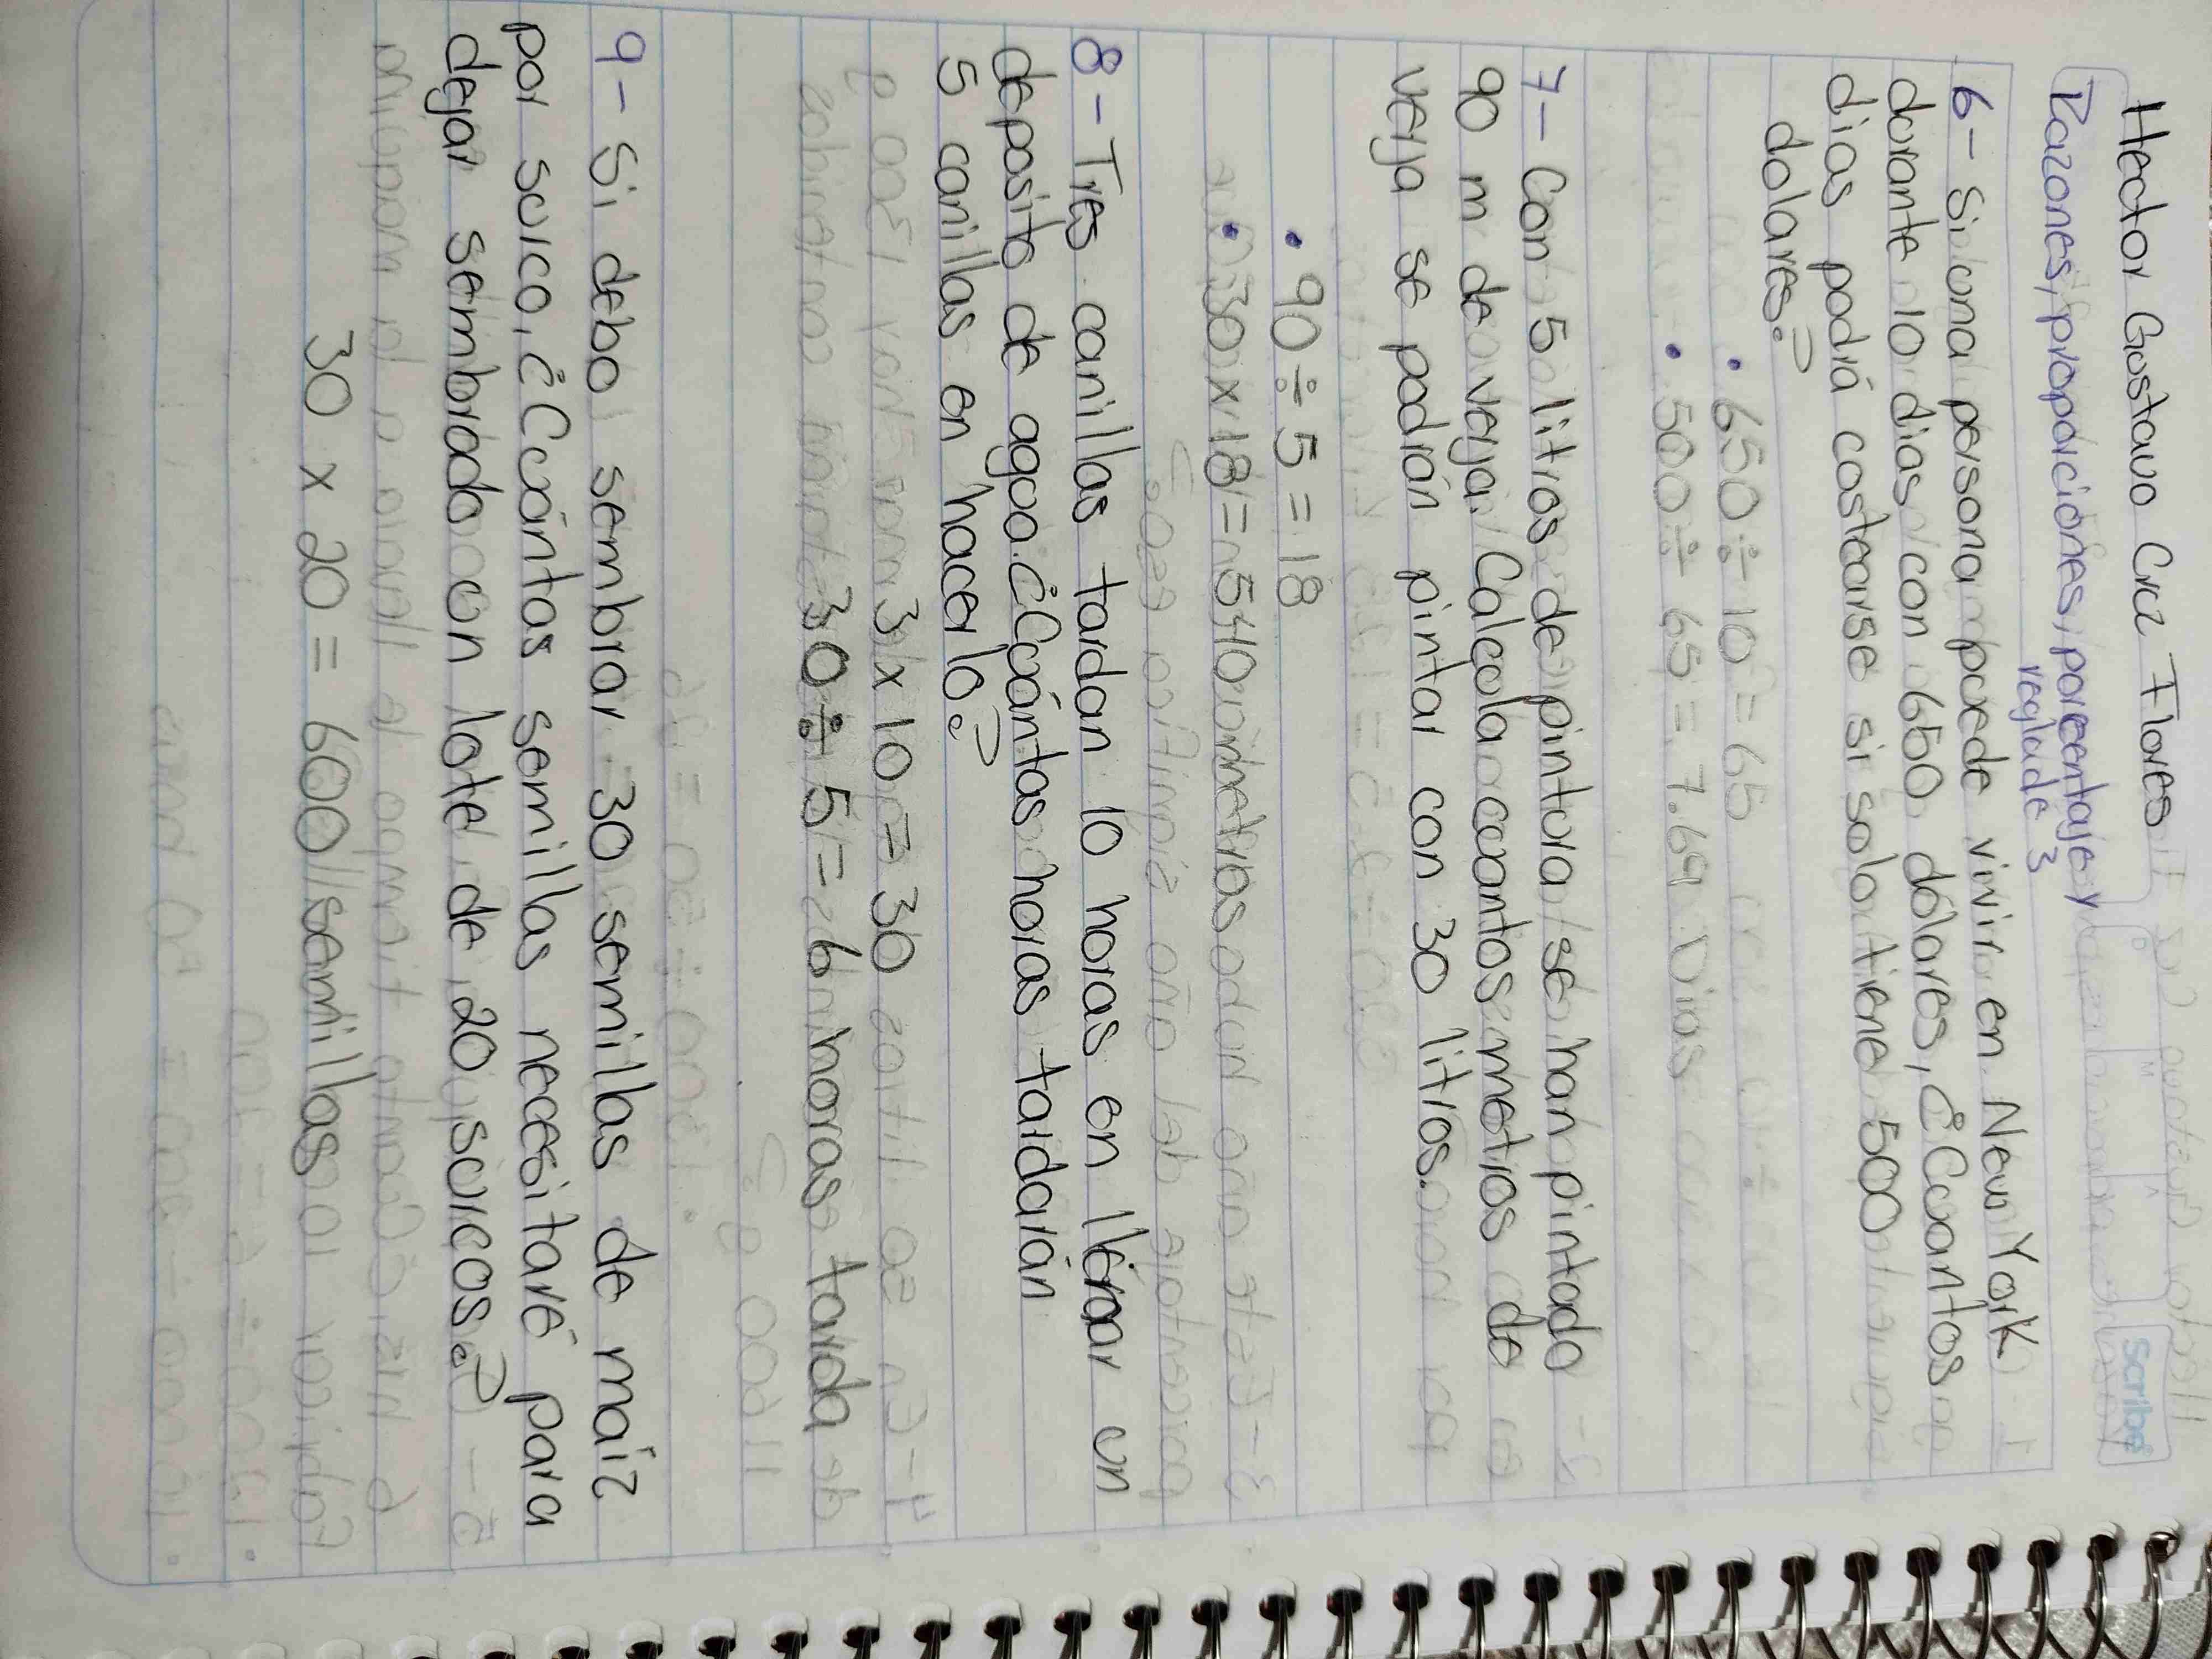 Hector Gustavo Cruz Flores
Scribe
Razones, proporciones, porcentaje y
regla de 3
6- Si una persona puede vivir en New York
durante 10 dias con 650 dólares, ¿Cuantos
dias podrá costearse si solo tiene 500
dolares?
• 650 ÷ 10 = 65
• 500 ÷ 65 = 7.69 Dias
7- Con 5 litros de pintura se han pintado
90 m de verja. Calcula cuantos metros de
verja se podrán pintar con 30 litros.
• 90 ÷ 5 = 18
• 30 x 18 = 540 metros
8- Tres canillas tardan 10 horas en llenar un
deposito de agua. ¿Cuántas horas tardarán
5 canillas en hacerlo?
3 x 10 = 30
30 ÷ 5 = 6 horas tarda
9- Si debo sembrar 30 semillas de maíz
por surco, ¿Cuántas semillas necesitaré para
dejar sembrado un lote de 20 surcos?
30 x 20 = 600//semillas